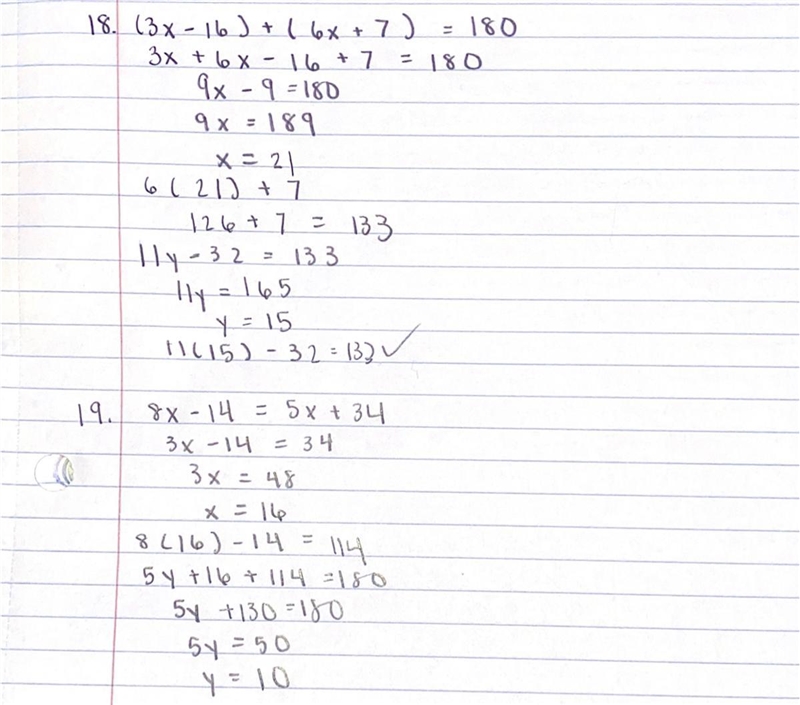 18. (3x - 16) + (6x + 7) = 180
3x + 6x - 16 + 7 = 180
9x - 9 = 180
9x = 189
x = 21
6(21) + 7
126 + 7 = 133
11y - 32 = 133
11y = 165
y = 15
11(15) - 32 = 133 ✓
19. 8x - 14 = 5x + 34
3x - 14 = 34
3x = 48
x = 16
8(16) - 14 = 114
5y + 16 + 114 = 180
5y + 130 = 180
5y = 50
y = 10